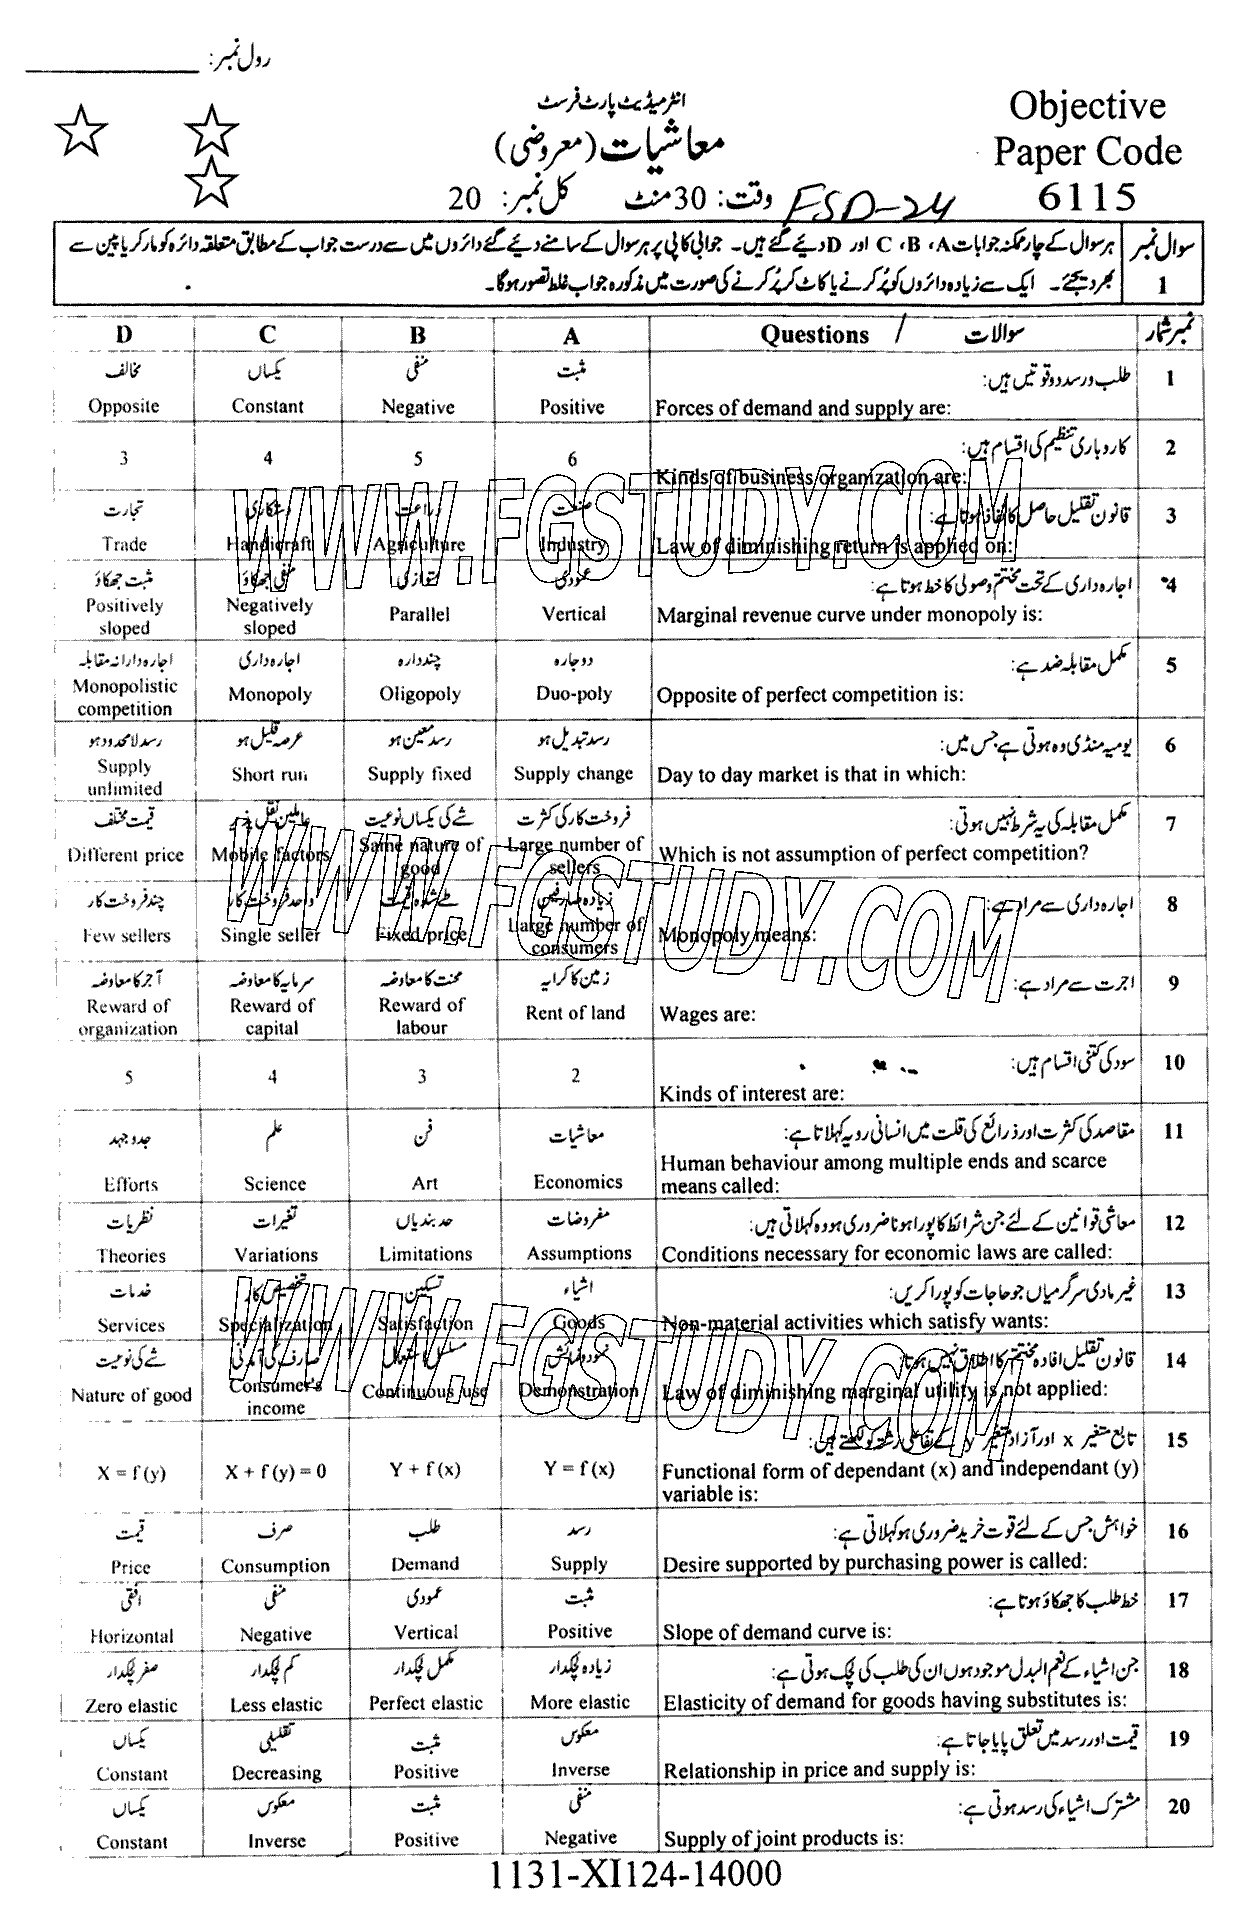 رول نمبر: ____________
انٹرمیڈیٹ پارٹ فرسٹ
Objective
معاشیات (معروضی)
Paper Code
وقت: 30 منٹ کل نمبر: 20
FSD-24
6115
سوال نمبر 1
ہر سوال کے چار ممکنہ جوابات A ، B ، C اور D دیئے گئے ہیں۔ جوابی کاپی پر ہر سوال کے سامنے دیئے گئے دائروں میں سے درست جواب کے مطابق متعلقہ دائرہ کو مارکر یا پین سے
بھر دیجئے۔ ایک سے زیادہ دائروں کو پُر کرنے یا کاٹ کر پُر کرنے کی صورت میں مذکورہ جواب غلط تصور ہوگا۔
D C B A Questions / سوالات نمبر شمار
مخالف یکساں منفی مثبت طلب و رسد دو قوتیں ہیں: 1
Opposite Constant Negative Positive Forces of demand and supply are:
کاروباری تنظیم کی اقسام ہیں: 2
3 4 5 6
Kinds of business organization are:
تجارت دستکاری زراعت صنعت قانون تقلیل حاصل کا نفاذ ہوتا ہے: 3
Trade Handicraft Agriculture Industry Law of diminishing return is applied on:
مثبت جھکاؤ منفی جھکاؤ متوازی عمودی اجارہ داری کے تحت مختتم وصولی کا خط ہوتا ہے: 4
Positively sloped Negatively sloped Parallel Vertical Marginal revenue curve under monopoly is:
اجارہ دارانہ مقابلہ اجارہ داری چند دارہ دو جارہ مکمل مقابلہ ضد ہے: 5
Monopolistic competition Monopoly Oligopoly Duo-poly Opposite of perfect competition is:
رسد لامحدود ہو عرصہ قلیل ہو رسد معین ہو رسد تبدیل ہو یومیہ منڈی وہ ہوتی ہے جس میں: 6
Supply unlimited Short run Supply fixed Supply change Day to day market is that in which:
قیمت مختلف عاملین نقل پذیر شے کی یکساں نوعیت فروخت کار کی کثرت مکمل مقابلہ کی یہ شرط نہیں ہوتی: 7
Different price Mobile factors Same nature of good Large number of sellers Which is not assumption of perfect competition?
چند فروخت کار واحد فروخت کار طے شدہ قیمت زیادہ صارفین اجارہ داری سے مراد ہے: 8
Few sellers Single seller Fixed price Large number of consumers Monopoly means:
آجر کا معاوضہ سرمایہ کا معاوضہ محنت کا معاوضہ زمین کا کرایہ اجرت سے مراد ہے: 9
Reward of organization Reward of capital Reward of labour Rent of land Wages are:
سود کی کتنی اقسام ہیں: 10
5 4 3 2
Kinds of interest are:
جدوجہد علم فن معاشیات مقاصد کی کثرت اور ذرائع کی قلت میں انسانی رویہ کہلاتا ہے: 11
Efforts Science Art Economics Human behaviour among multiple ends and scarce
means called:
نظریات تغیرات حد بندیاں مفروضات معاشی قوانین کے لئے جن شرائط کا پورا ہونا ضروری ہو وہ کہلاتی ہیں: 12
Theories Variations Limitations Assumptions Conditions necessary for economic laws are called:
خدمات تخصیص کار تسکین اشیاء غیر مادی سرگرمیاں جو حاجات کو پورا کریں: 13
Services Specialization Satisfaction Goods Non-material activities which satisfy wants:
شے کی نوعیت صارف کی آمدنی مسلسل استعمال نمود و نمائش قانون تقلیل افادہ مختتم کا اطلاق نہیں ہوتا: 14
Nature of good Consumer's income Continuous use Demonstration Law of diminishing marginal utility is not applied:
تابع متغیر x اور آزاد متغیر y کے تفاعلی رشتہ کو لکھتے ہیں: 15
X = f (y) X + f (y) = 0 Y + f (x) Y = f (x) Functional form of dependant (x) and independant (y)
variable is:
قیمت صرف طلب رسد خواہش جس کے لئے قوت خرید ضروری ہو کہلاتی ہے: 16
Price Consumption Demand Supply Desire supported by purchasing power is called:
افقی منفی عمودی مثبت خط طلب کا جھکاؤ ہوتا ہے: 17
Horizontal Negative Vertical Positive Slope of demand curve is:
صفر لچکدار کم لچکدار مکمل لچکدار زیادہ لچکدار جن اشیاء کے نعم البدل موجود ہوں ان کی طلب کی لچک ہوتی ہے: 18
Zero elastic Less elastic Perfect elastic More elastic Elasticity of demand for goods having substitutes is:
یکساں تقلیلی مثبت معکوس قیمت اور رسد میں تعلق پایا جاتا ہے: 19
Constant Decreasing Positive Inverse Relationship in price and supply is:
یکساں معکوس مثبت منفی مشترک اشیاء کی رسد ہوتی ہے: 20
Constant Inverse Positive Negative Supply of joint products is:
1131-XI124-14000
WWW.FGSTUDY.COM
WWW.FGSTUDY.COM
WWW.FGSTUDY.COM